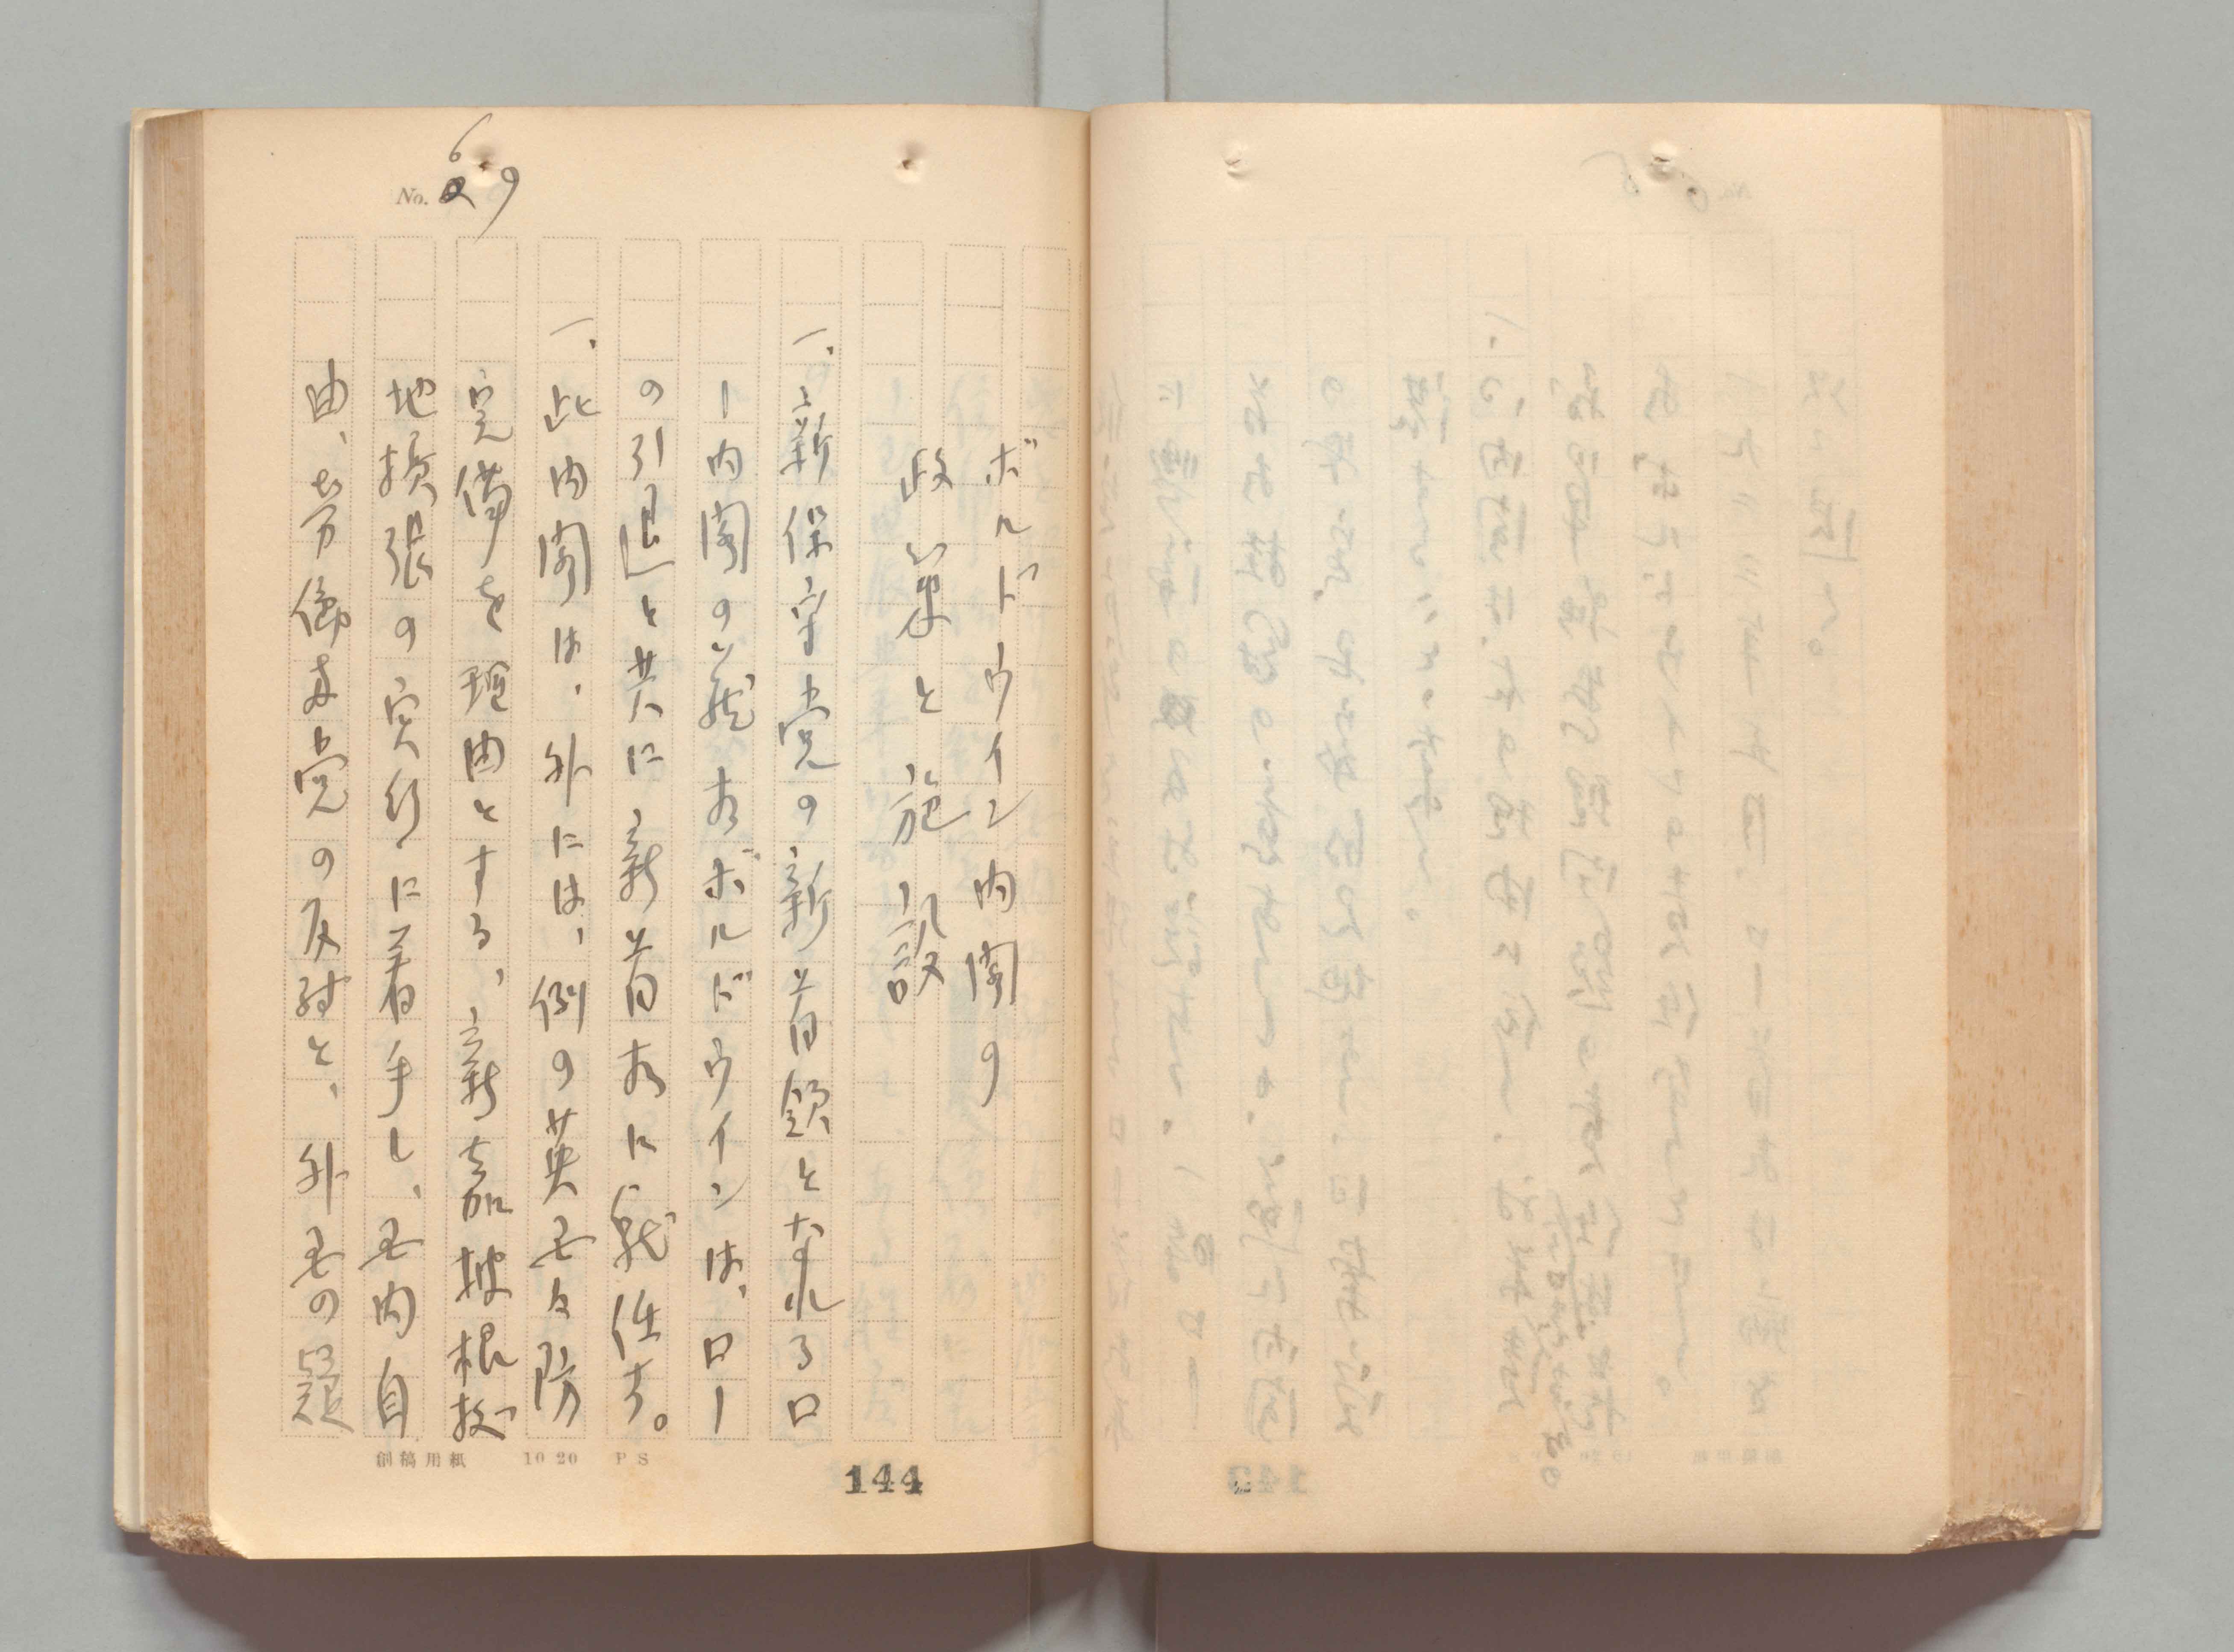 No. 69
ボルドウイン内閣の
政策と施設
一、新保守党の新首領となれるロ
ー内閣の蔵相ボルドウインは、ロー
の引退と共に新首相に就任す。
一、此内閣は、外には、例の英国々防
完備を理由とする、新嘉坡根拠
地拡張の実行に着手し、国内自
由、労働両党の反対と、外国の疑
創稿用紙 10 20 PS
144